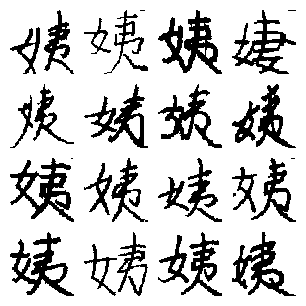 姨姨姨姨
姨姨姨姨
姨姨姨姨
姨姨姨姨